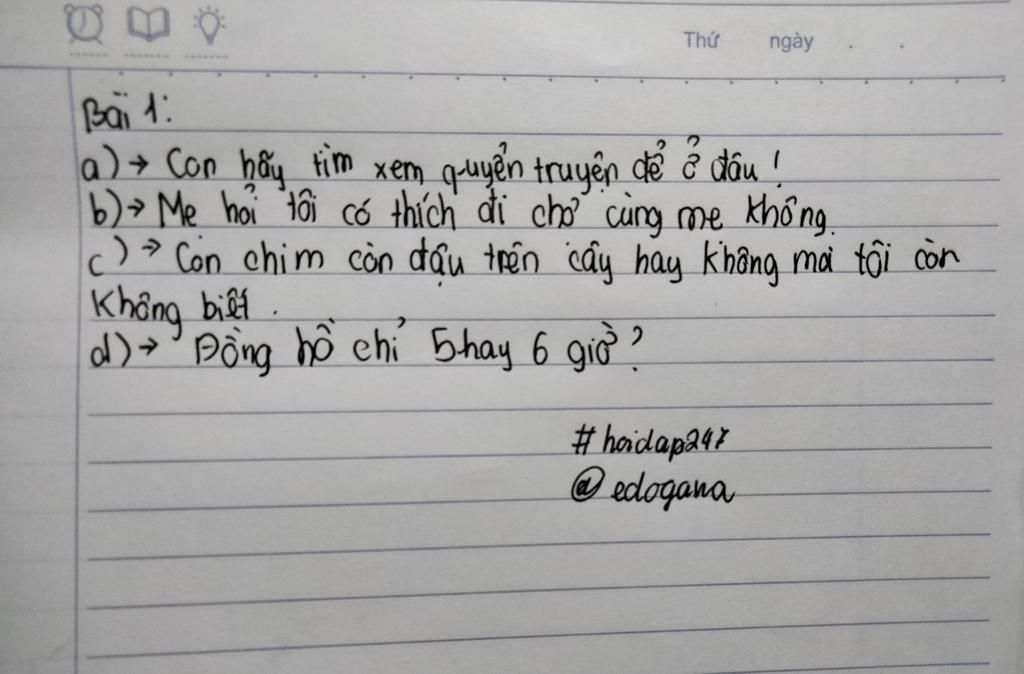 Thứ ngày . .
Bài 1:
a) → Con hãy tìm xem quyển truyện để ở đâu!
b) → Mẹ hỏi tôi có thích đi chợ cùng mẹ không.
c) → Con chim còn đậu trên cây hay không mà tôi còn
không biết.
d) → Đồng hồ chỉ 5 hay 6 giờ?
#hoidap247
@edogawa